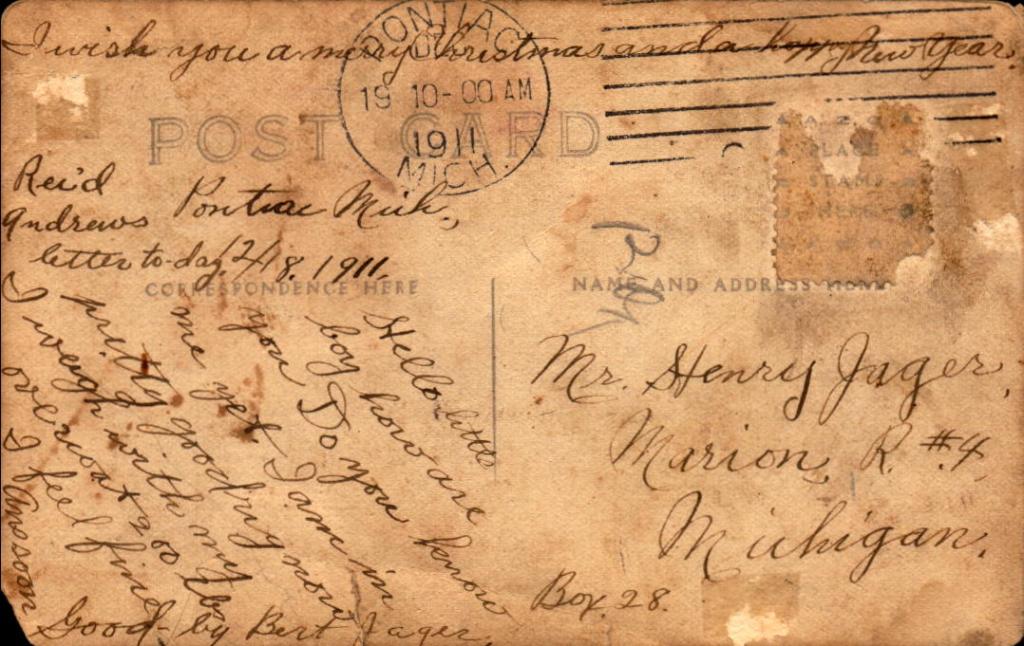 I wish you a merry Christmas and a happy New Year.
PONTIAC
DEC
19 10-00 AM
1911
MICH.
POST CARD
PLACE
STAMP
HERE
Rec'd
Andrews
letter to-day.
Pontiac Mich.,
12/18. 1911.
CORRESPONDENCE HERE
NAME AND ADDRESS HERE
Hello little
boy how are
you Do you know
me yet I am in
pritty good rig now
I weigh with my
overcoat 200 lbs
I feel fine
Ans soon
Good-by Bert Jager.
Mr. Henry Jager,
Marion, R. #4
Michigan.
Box 28.